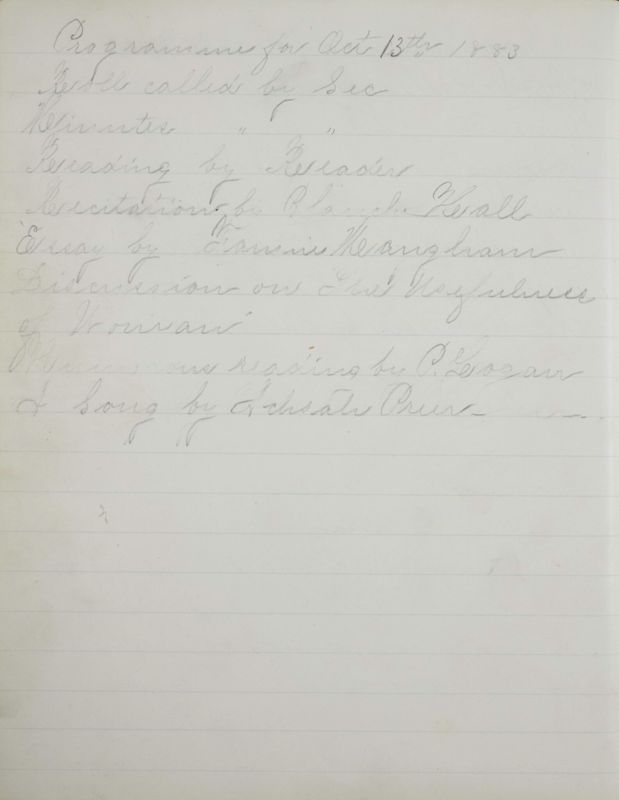 Programme for Oct 13th 1883
Roll called by Sec
Minutes " "
Reading by Reader
Recitation by Hall
Essay by Fannie Mangham
Discussion on "The Usefulness
of Woman"
reading by P. Logan
A Song by